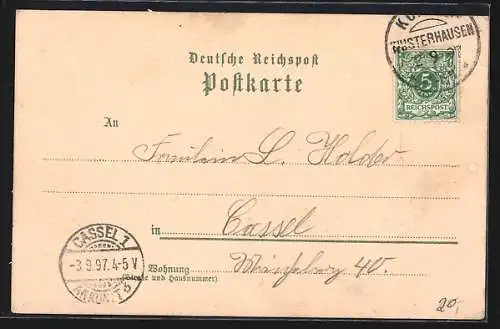 WUSTERHAUSEN
5
REICHSPOST
Deutsche Reichspost
Postkarte
An
Fräulein L. Holder
in Cassel
Wohnung 40.
(Straße und Hausnummer)
CASSEL 1
-3.9.97. 4-5 V
20,-